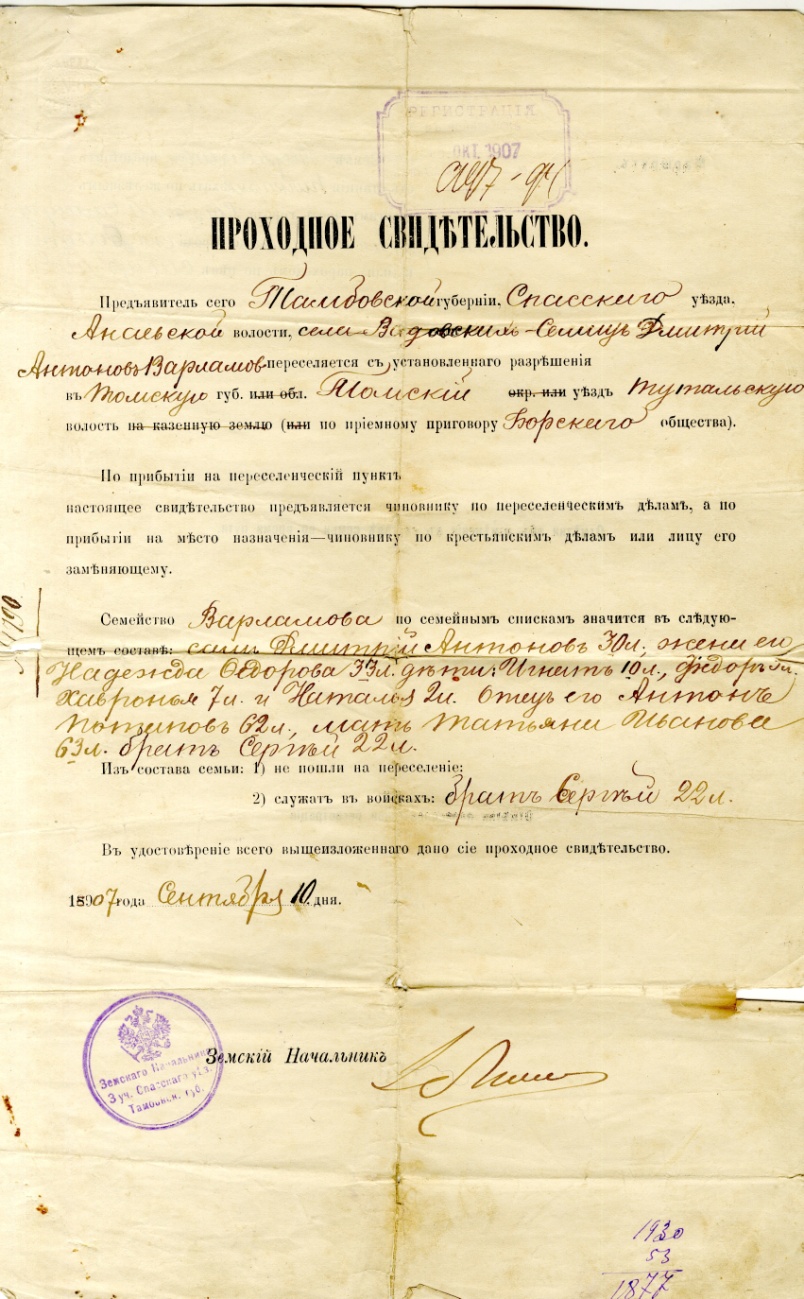 РЕГИСТРАЦІЯ
ОКТ. 1907
ПРОХОДНОЕ СВИДѢТЕЛЬСТВО.
Предъявитель сего Тамбовской губерніи, Спасскаго уѣзда,
Анаевской волости, села Вадовскихъ-Селищъ Дмитрій
Антоновъ Варламов переселяется съ установленнаго разрѣшенія
въ Томскую губ. или обл. Томскій окр. или уѣздъ Тутальскую
волость на казенную землю (или по пріемному приговору Борскаго общества).
По прибытіи на переселенческій пунктъ
настоящее свидѣтельство предъявляется чиновнику по переселенческимъ дѣламъ, а по
прибытіи на мѣсто назначенія—чиновнику по крестьянскимъ дѣламъ или лицу его
замѣняющему.
Семейство Варламова по семейнымъ спискамъ значится въ слѣдую-
щемъ составѣ: самъ Дмитрій Антоновъ 30 л., жена его
Надежда Ѳедорова 33 л. дѣти: Игнатъ 10 л., Ѳедоръ
Хавронья 7 л. и Наталья 2 л. Отец его Антонъ
Потаповъ 62 л., мать Татьяна Иванова
63 л. братъ Сергѣй 22 л.
Изъ состава семьи: 1) не пошли на переселеніе:
2) служатъ въ войскахъ: братъ Сергѣй 22 л.
Въ удостовѣреніе всего вышеизложеннаго дано сіе проходное свидѣтельство.
1907 года Сентября 10 дня.
Земскій Начальникъ
Земскаго Начальника
3 уч. Спасскаго уѣз.
Тамбовск. губ.
1930
53
1877